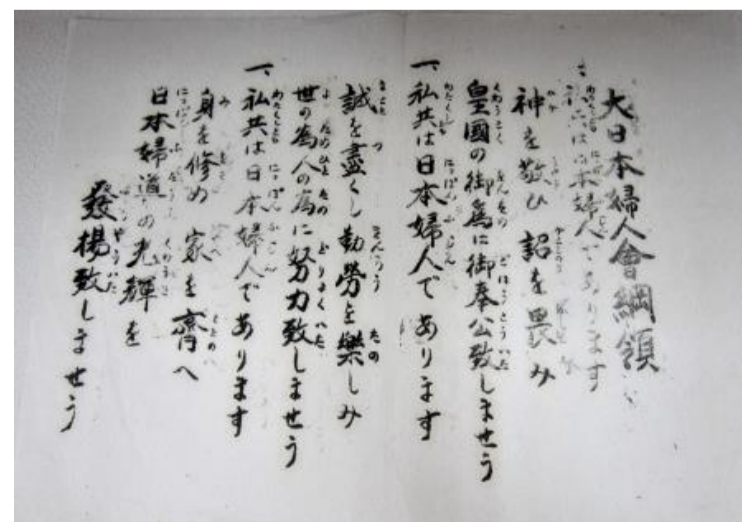 大日本婦人會綱領
一、私共は日本婦人であります
神を敬ひ詔を畏み
皇國の御爲に御奉公致しませう
一、私共は日本婦人であります
誠を盡くし勤勞を樂しみ
世の為人の為に努力致しませう
一、私共は日本婦人であります
身を修め家を齊へ
日本婦道の光輝を
發揚致しませう